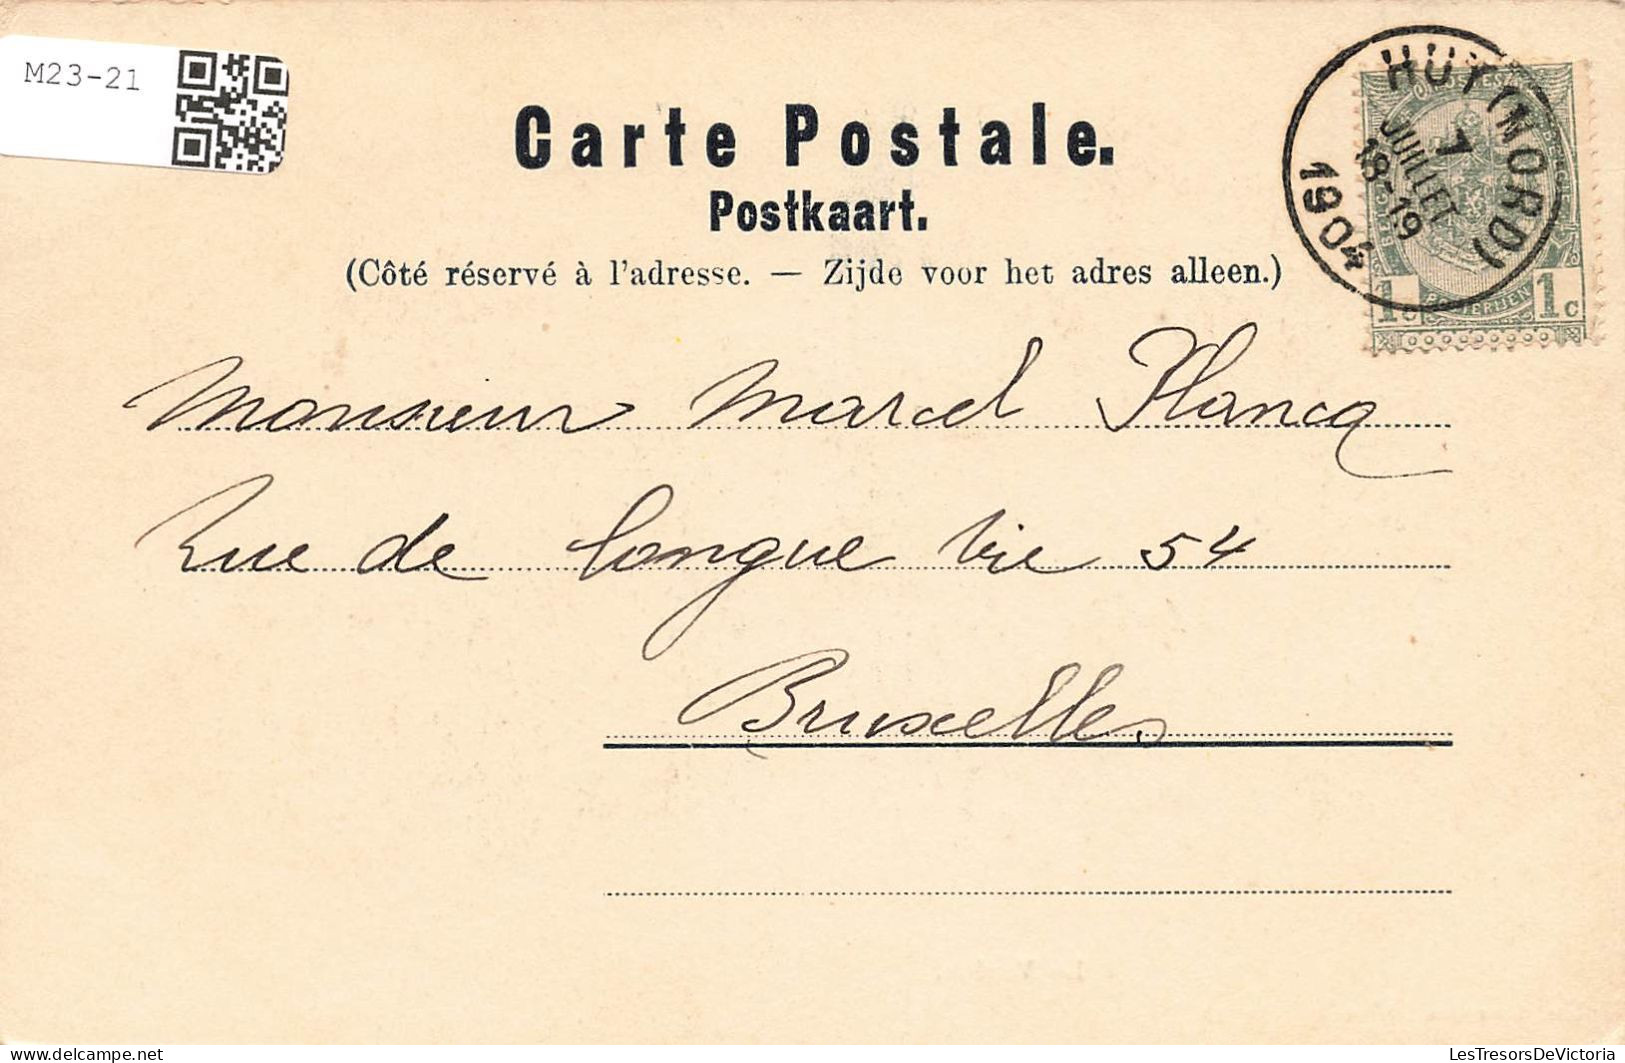 M23-21
Carte Postale.
Postkaart.
(Côté réservé à l'adresse. — Zijde voor het adres alleen.)
HUY (NORD)
7
JUILLET
18-19
1904
1c POSTERIJEN 1c
Monsieur Marcel Plancq
Rue de longue vie 54
Bruxelles
delcampe.net
LesTresorsDeVictoria